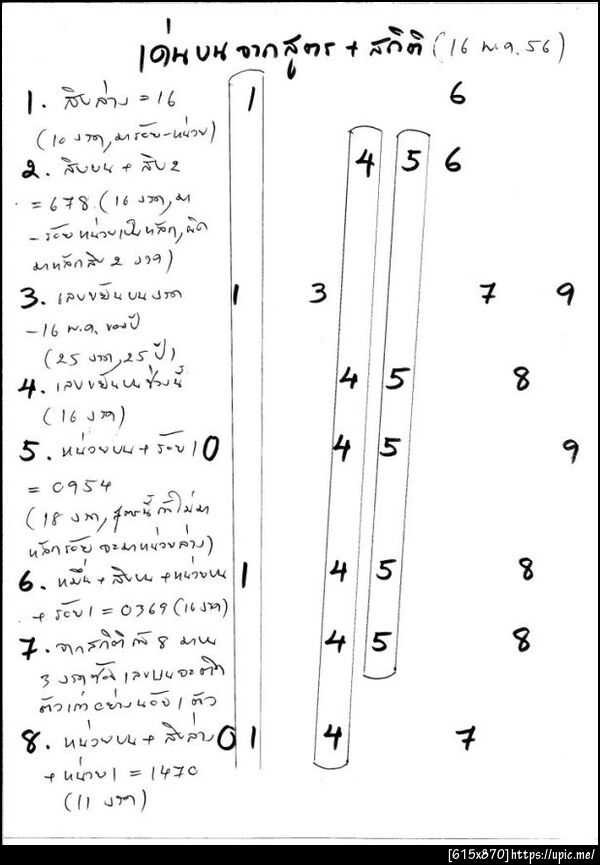 เด่นบน จากสูตร + สถิติ (16 พ.ค. 56)
1. สิบล่าง = 16 1 6
(10 งวด, มาร้อย-หน่วย)
2. สิบบน + สิบ2 4 5 6
= 678 (16 งวด, มา
-ร้อยหน่วยเป็นหลัก, ผิด
มาหลักสิบ 2 งวด)
3. เลขขยันบนงวด 1 3 7 9
-16 พ.ค. ของปี
(25 งวด, 25 ปี)
4. เลขขยันบนช่วงนี้ 4 5 8
(16 งวด)
5. หน่วยบน + ร้อย1 0 4 5 9
= 0954
(18 งวด, สูตรนี้ถ้าไม่มา
หลักร้อยจะมาหน่วยล่าง)
6. หมื่น + สิบบน + หน่วยบน 1 4 5 8
+ ร้อย1 = 0369 (16 งวด)
7. จากสถิติถ้า 8 มาบน 4 5 8
3 งวดซ้อน เลขบนจะติด
ตัวเก่าอย่างน้อย 1 ตัว
8. หน่วยบน + สิบล่าง 0 1 4 7
+ หน่วย1 = 1470
(11 งวด)
[615x870]https://upic.me/